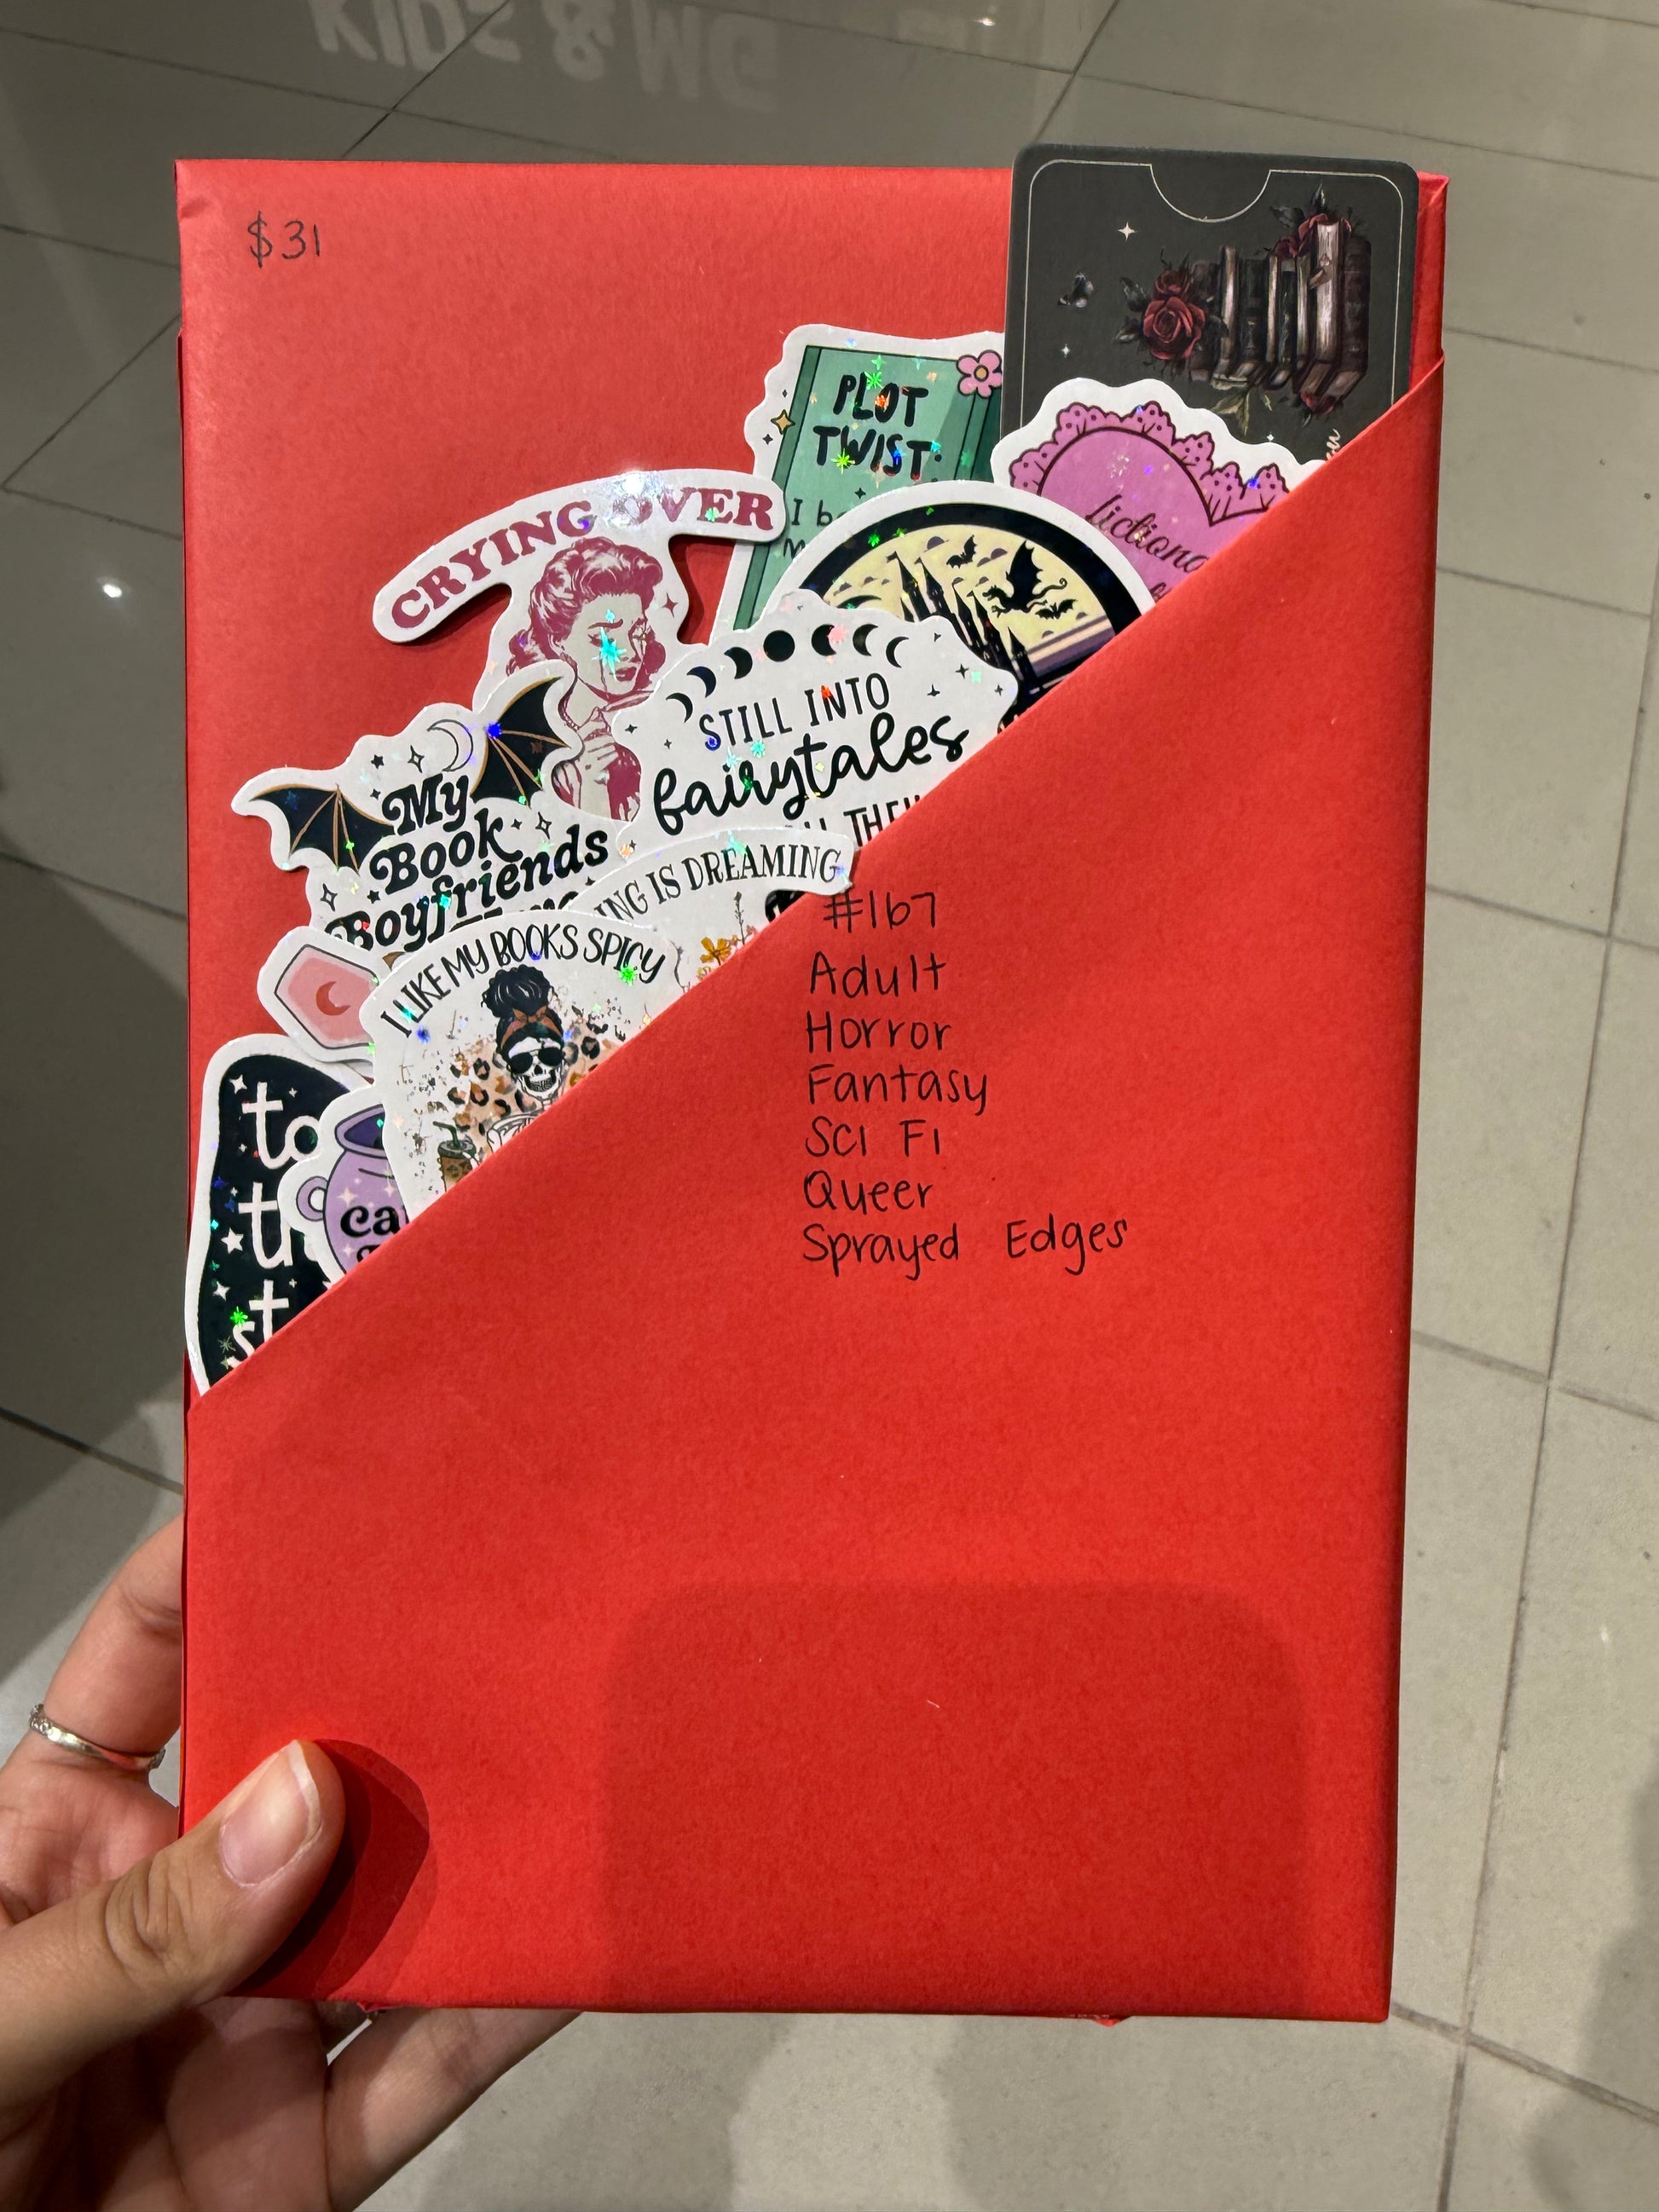 KIDS & WG
$31
PLOT
TWIST:
I
CRYING OVER
STILL INTO
fairytales
My
Book
Boyfriends
IS DREAMING
I LIKE MY BOOKS SPICY
#167
Adult
Horror
Fantasy
Sci Fi
Queer
Sprayed Edges